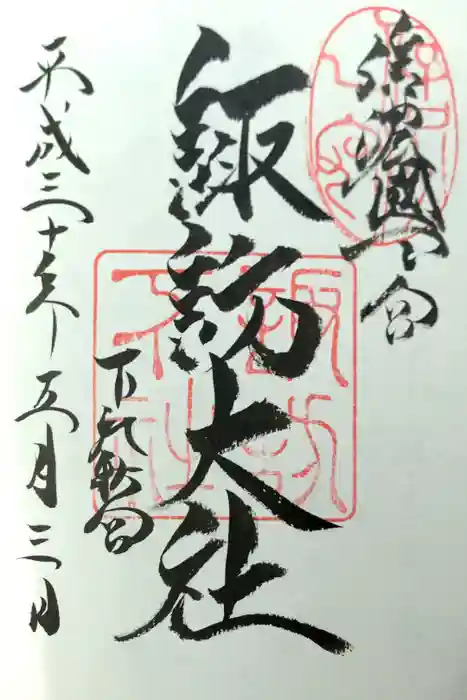 信濃國一宮
諏訪大社
下社秋宮
平成三十年五月三日